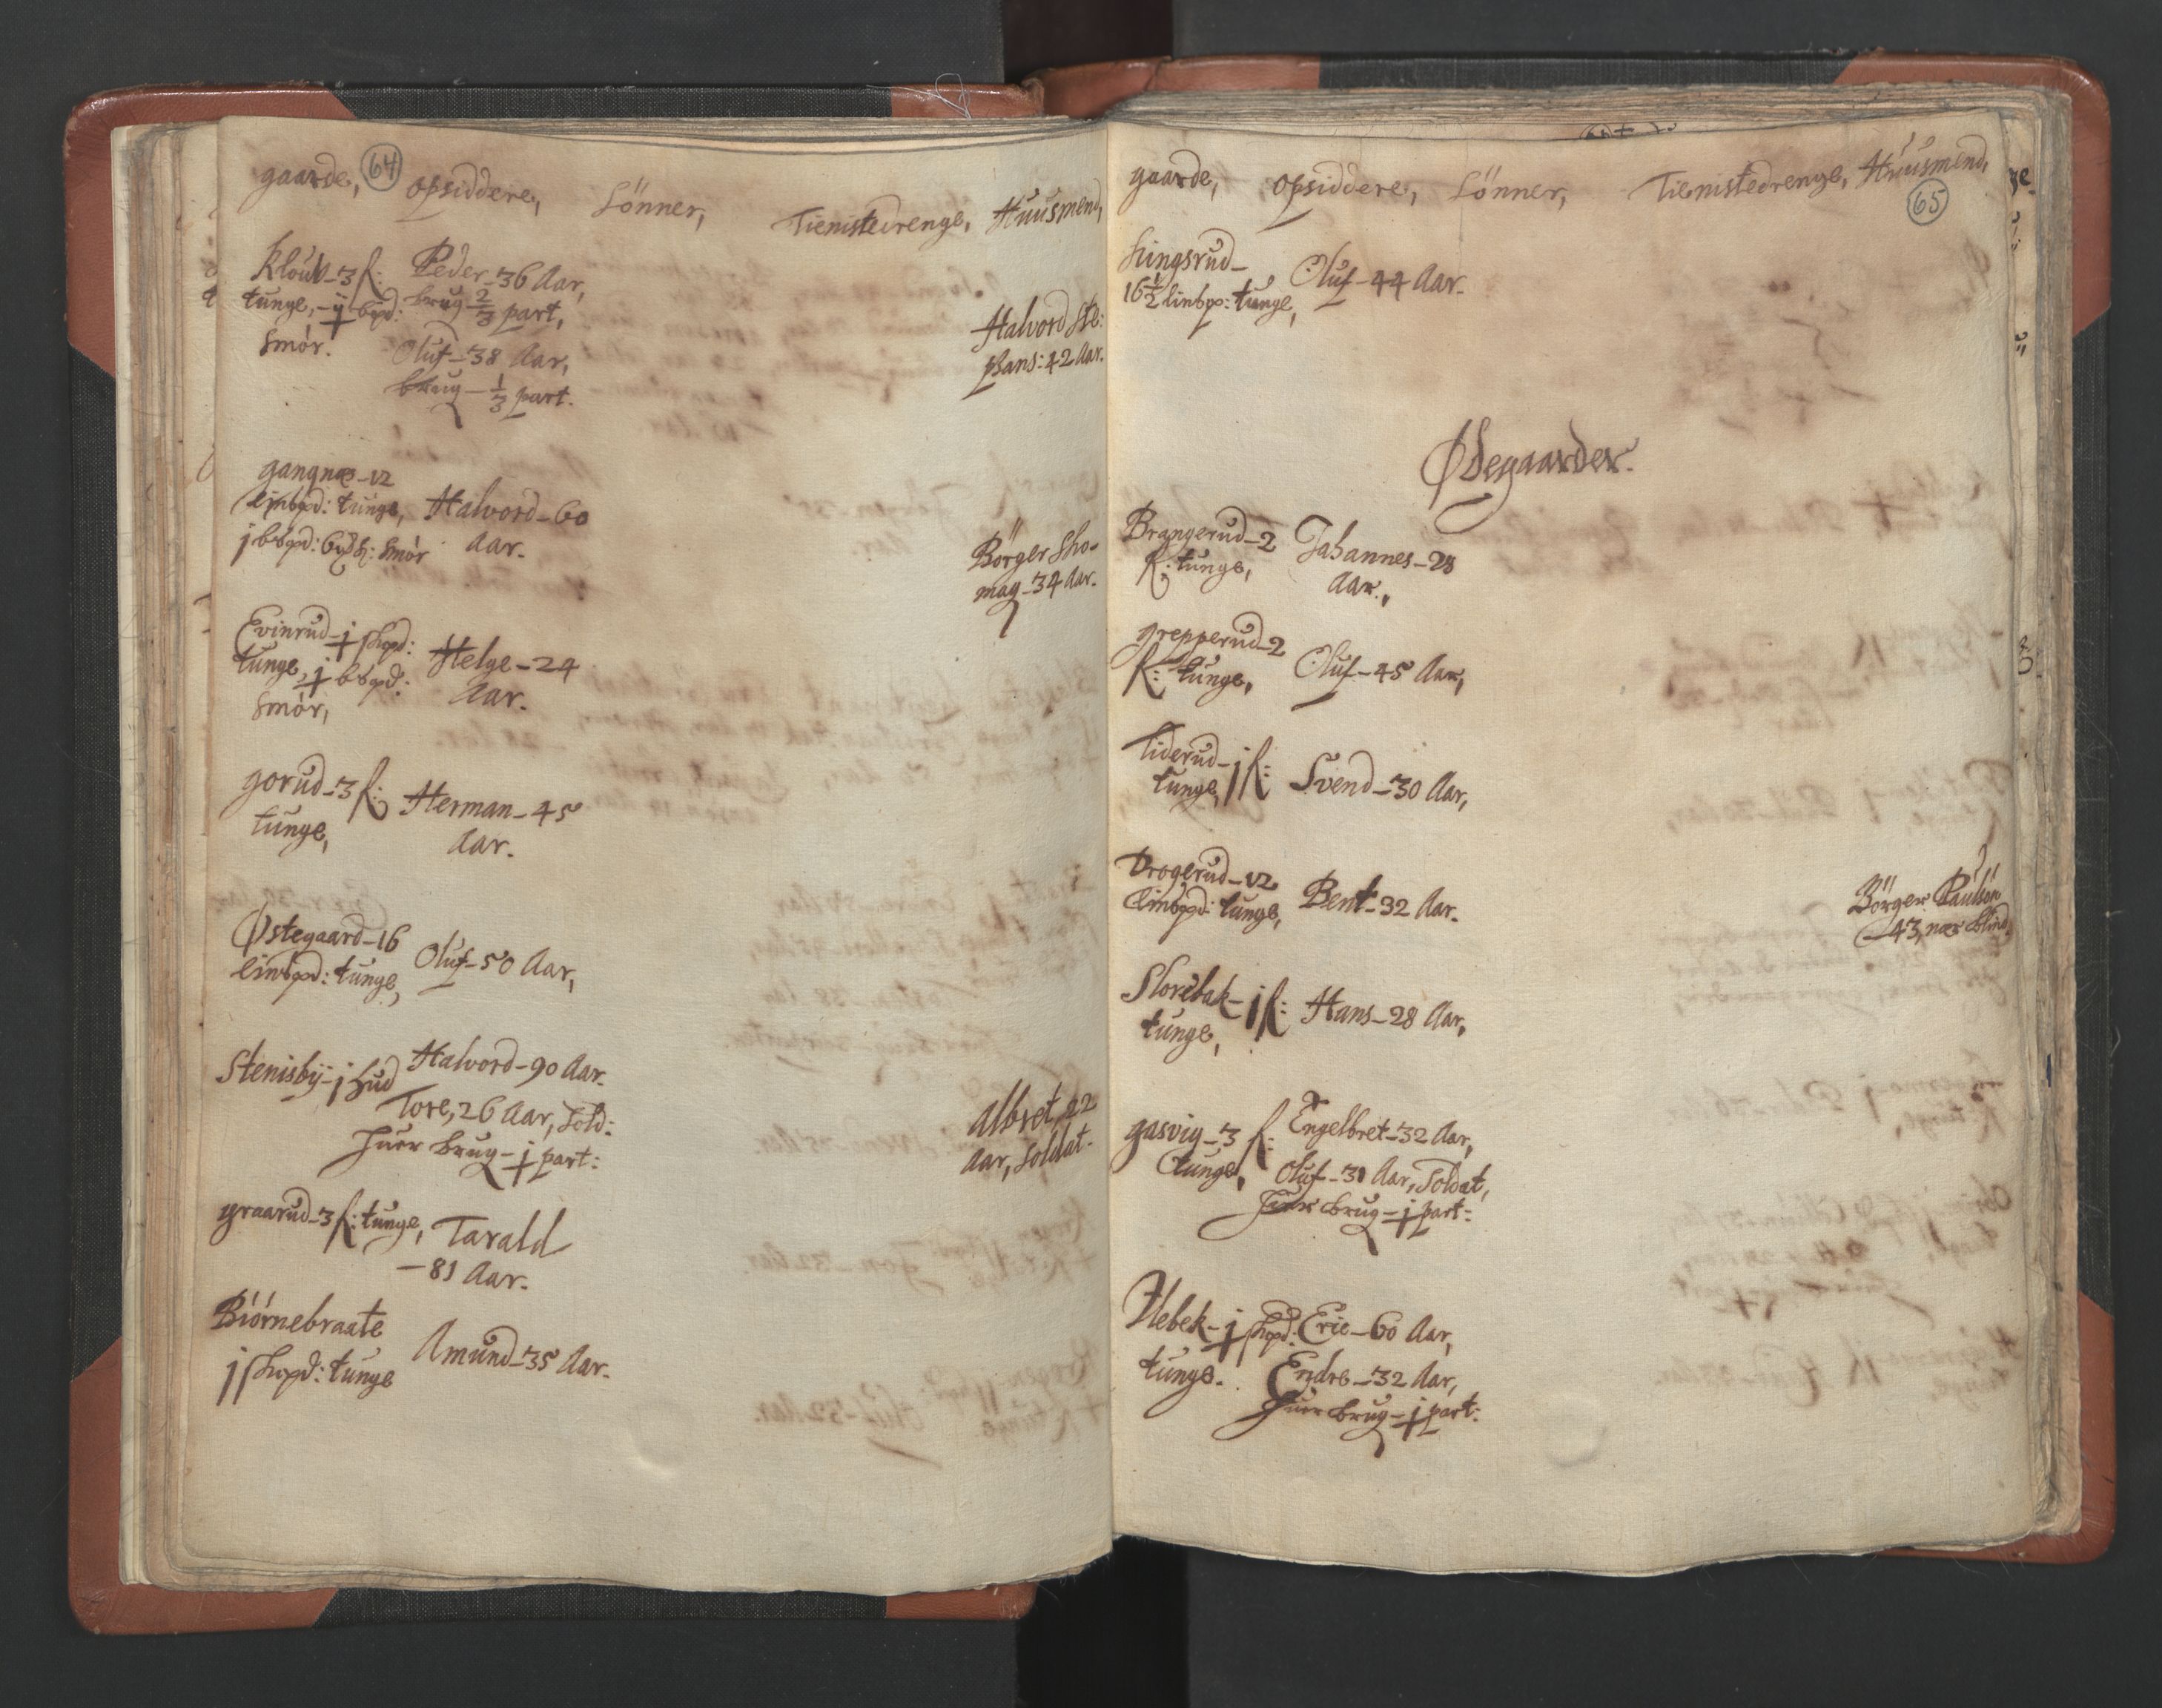 64
gaarde, opsiddere, Sönner, Tienistedrenge, Huusmend,
Klouk-3 f: Peder-36 Aar,
tunge,-ij bpd: brug 2/3 part,
Smör. Oluf-38 Aar,
brug-1/3 part.
Halvord Ste:
phans: 42 Aar.
gangnæ-12
linspd: tunge, Halvord-60
j bspd: 6 Smör Aar.
Börger Sko-
mag-34 Aar.
Evinrud-j skpd: Helge-24
tunge, j bspd: Aar.
Smör,
gorud-3 f: Herman-45
tunge, Aar.
Østegaard-16 Oluf-50 Aar,
linspd: tunge,
Stenisbÿ-j hud Halvord-90 Aar.
Tore, 26 Aar, Sold:
huer brug-j part:
Albret, 22
Aar, Soldat.
graarud-3 f: tunge, Tarald
-81 Aar.
Biörnebraate Amund-35 Aar.
j skpd: tunge
65
gaarde, opsiddere, Sönner, Tienistedrenge, Huusmend,
Kingsrud- Oluf-44 Aar.
16½ linspd: tunge,
Ødegaarder.
Brangerud-2 Johannes-28
f: tunge, Aar.,
grepperud-2 Oluf-45 Aar,
f: tunge,
Tiderud-j f: Svend-30 Aar,
tunge,
Drogerud-12 Bent-32 Aar.
linspd: tunge,
Börger Paulsön
-43, nær blind,
Slorebak-j f: Hans-28 Aar,
tunge,
gasvig-3 f: Engelbret-32 Aar,
tunge, Oluf-31 Aar, Soldat,
huer brug-j part:
Ulebek-j skpd: Eric-60 Aar,
tunge. Endre-32 Aar,
huer brug-j part: